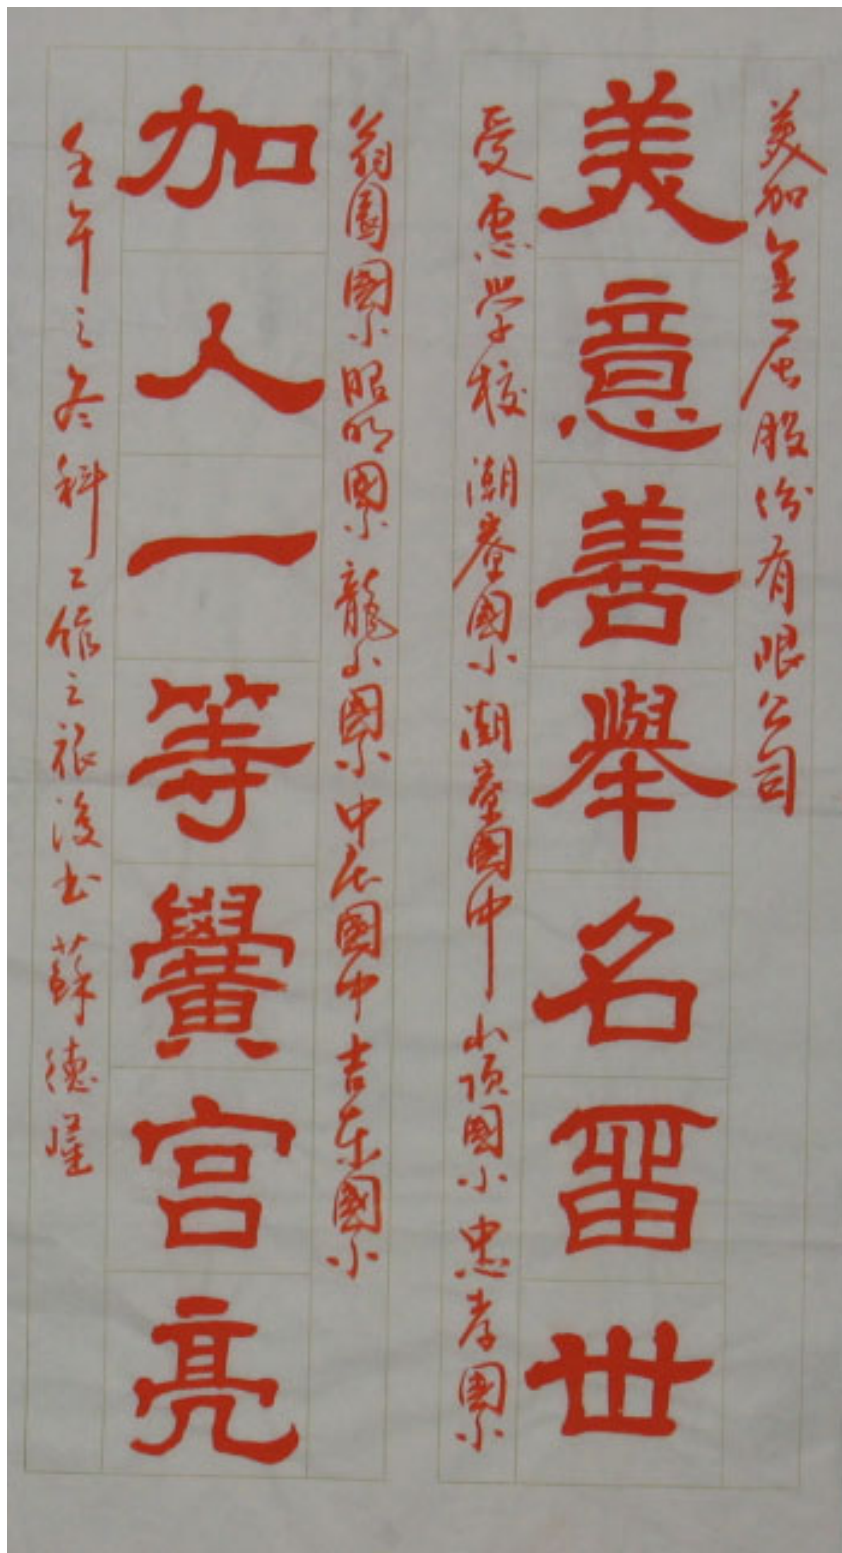 美加金屬股份有限公司
美意善舉名留世
受惠學校 潮寮國小 潮寮國中 山頂國小 忠孝國小
翁園國小 昭明國小 龍山國小 中庄國中 吉東國小
加人一等黌宮亮
壬午之冬 科工館之旅後書 蘇德隆